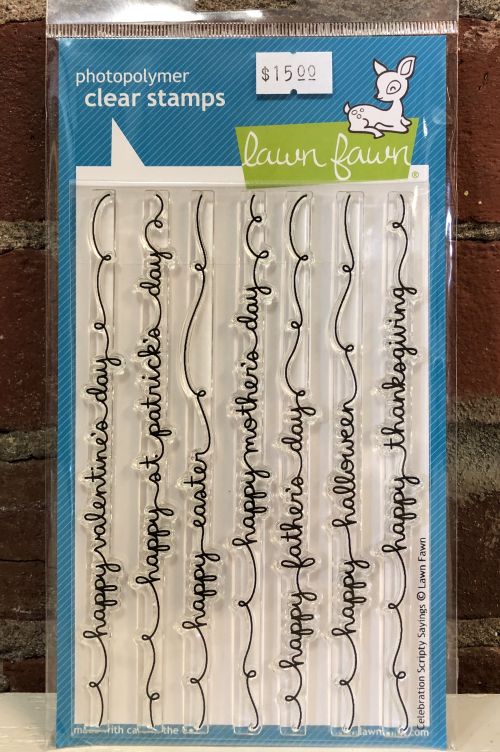 $15.00
photopolymer
clear stamps
lawn fawn®
happy valentine's day
happy st patrick's day
happy easter
happy mother's day
happy father's day
happy halloween
happy thanksgiving
Celebration Scripty Sayings © Lawn Fawn
made with ca the
lawn .com